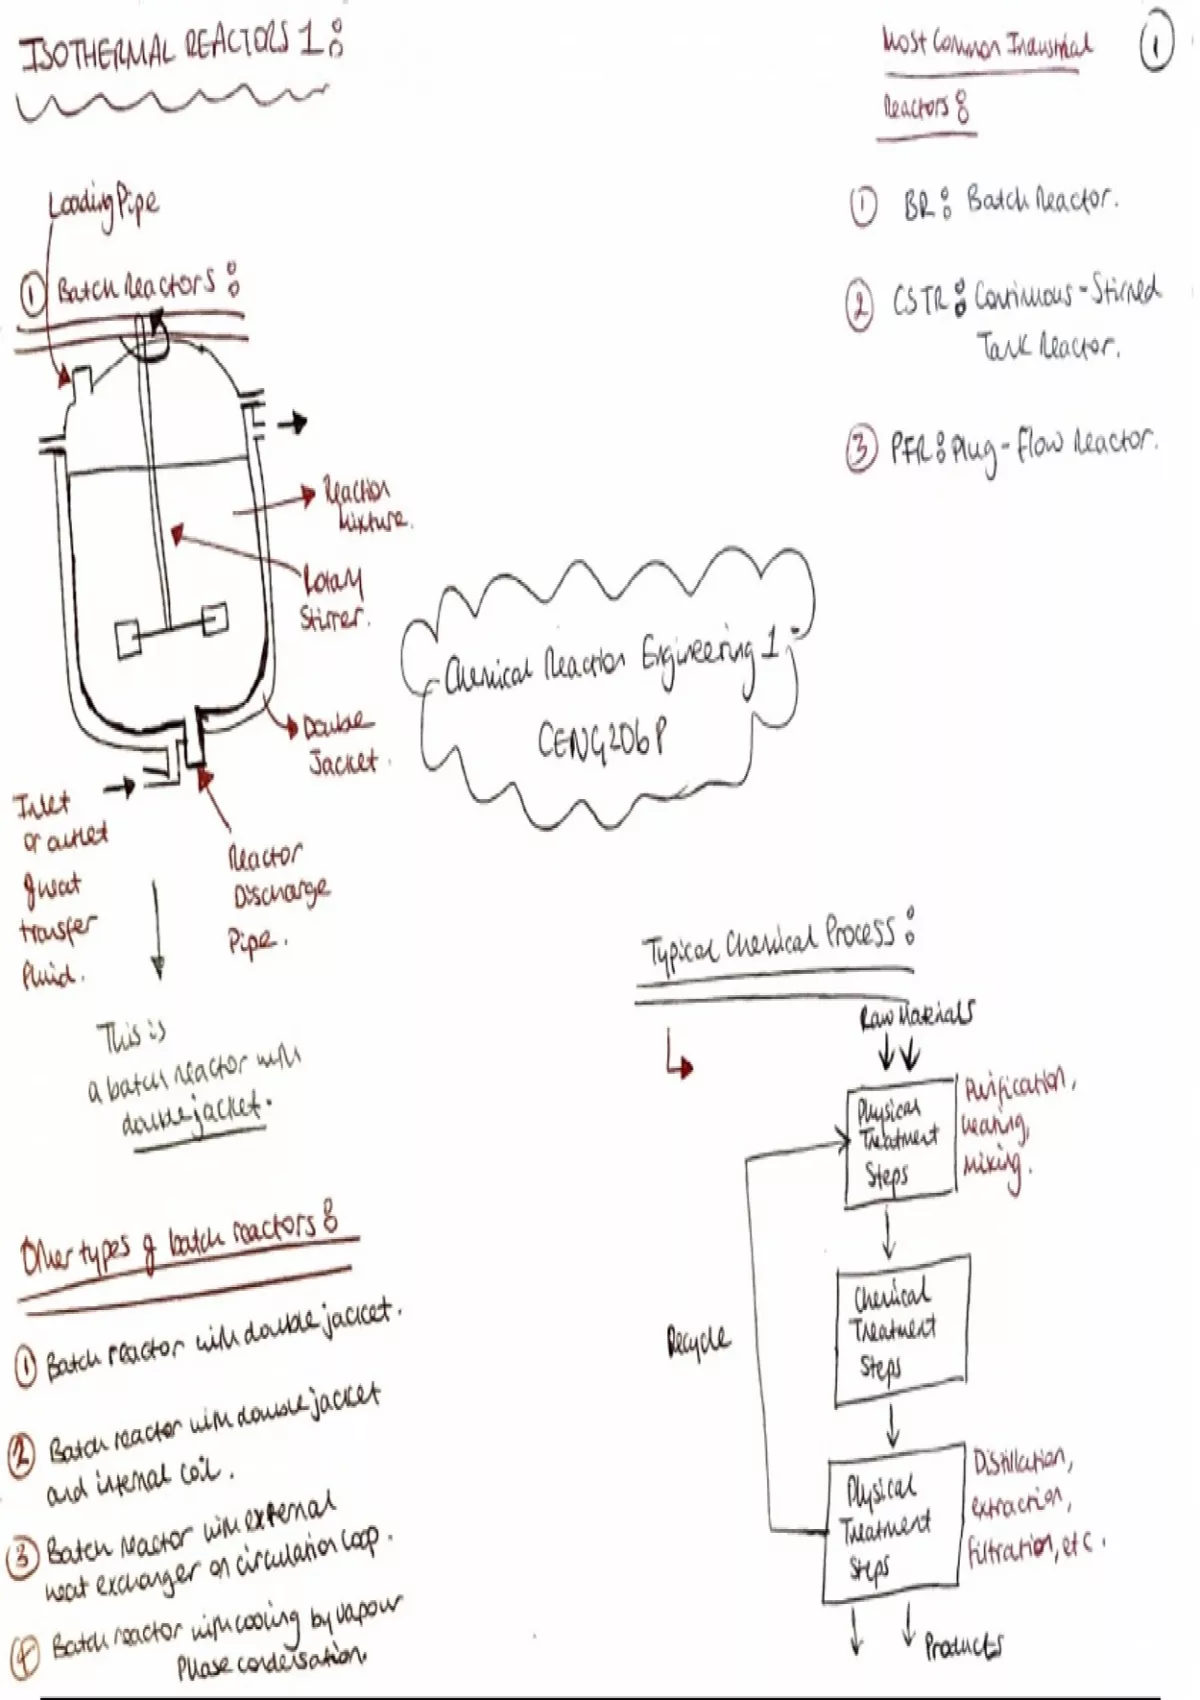 ISOTHERMAL REACTORS 1:
Most Common Industrial
Reactors:
1
① BR: Batch Reactor.
② CSTR: Continuous-Stirred
Tank Reactor.
③ PFR: Plug-Flow Reactor.
Loading Pipe
① Batch Reactors:
Reaction
Mixture.
Rotary
Stirrer.
Double
Jacket.
Inlet
or outlet
of heat
transfer
fluid.
Reactor
Discharge
Pipe.
This is
a batch reactor with
double jacket.
Chemical Reaction Engineering 1;
CENG206P
Other types of batch reactors:
① Batch reactor with double jacket.
② Batch reactor with double jacket
and internal coil.
③ Batch reactor with external
heat exchanger on circulation loop.
④ Batch reactor with cooling by vapour
Phase condensation.
Typical Chemical Process:
Raw Materials
Physical
Treatment
Steps
Purification,
heating,
mixing.
Recycle
Chemical
Treatment
Steps
Physical
Treatment
Steps
Distillation,
extraction,
filtration, etc.
Products